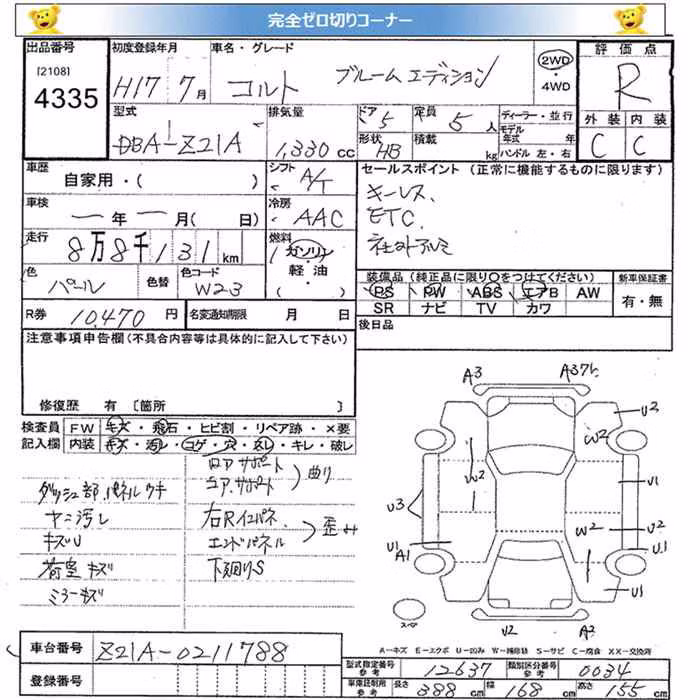 完全ゼロ切りコーナー
出品番号
[2108]
4335
初度登録年月
H17 7月
車名・グレード
コルト ブルームエディション
2WD
・
4WD
評価点
R
外装 内装
C C
型式
DBA-Z21A
排気量
1,330 cc
ドア
5
定員
5 人
形状
HB
積載
kg
ディーラー・並行
モデル年式 年
ハンドル 左・右
車歴
自家用・( )
シフト
A/T
セールスポイント (正常に機能するものに限ります)
キーレス、
ETC、
社外アルミ
車検
年 月( 日)
冷房
AAC
走行
8万8千131 km
燃料
ガソリン
軽油
・( )
色
パール
色替
色コード
W23
装備品 (純正品に限り○をつけてください)
PS PW ABS エアB AW
SR ナビ TV カワ
新車保証書
有・無
R券
10,470 円
名変通知期限 月 日
後日品
注意事項申告欄(不具合内容等は具体的に記入して下さい)
修復歴 有 [箇所 ]
検査員記入欄
FW キズ・飛石・ヒビ割・リペア跡・×要
内装 キズ・汚レ・コゲ・穴・スレ・キレ・破レ
ダッシュ部、パネルウキ
ヤニ汚レ
キズU
荷室キズ
ミラーキズ
ロアサポート
コアサポート
曲り
右Rインパネ、
エンドパネル
歪み
下廻りS
A3
U2
W2
W2
U3
U1
W2
U2
U1 A1
U1
U1
U2
A3
スペア
A-キズ E-エクボ U-凹み W-補修跡 S-サビ C-腐食 XX-交換済
車台番号
Z21A-0211788
登録番号
型式指定番号 参考
12637
類別区分番号 参考
0034
車庫証明用 参考
長さ 388 cm
幅 168 cm
高さ 155 cm